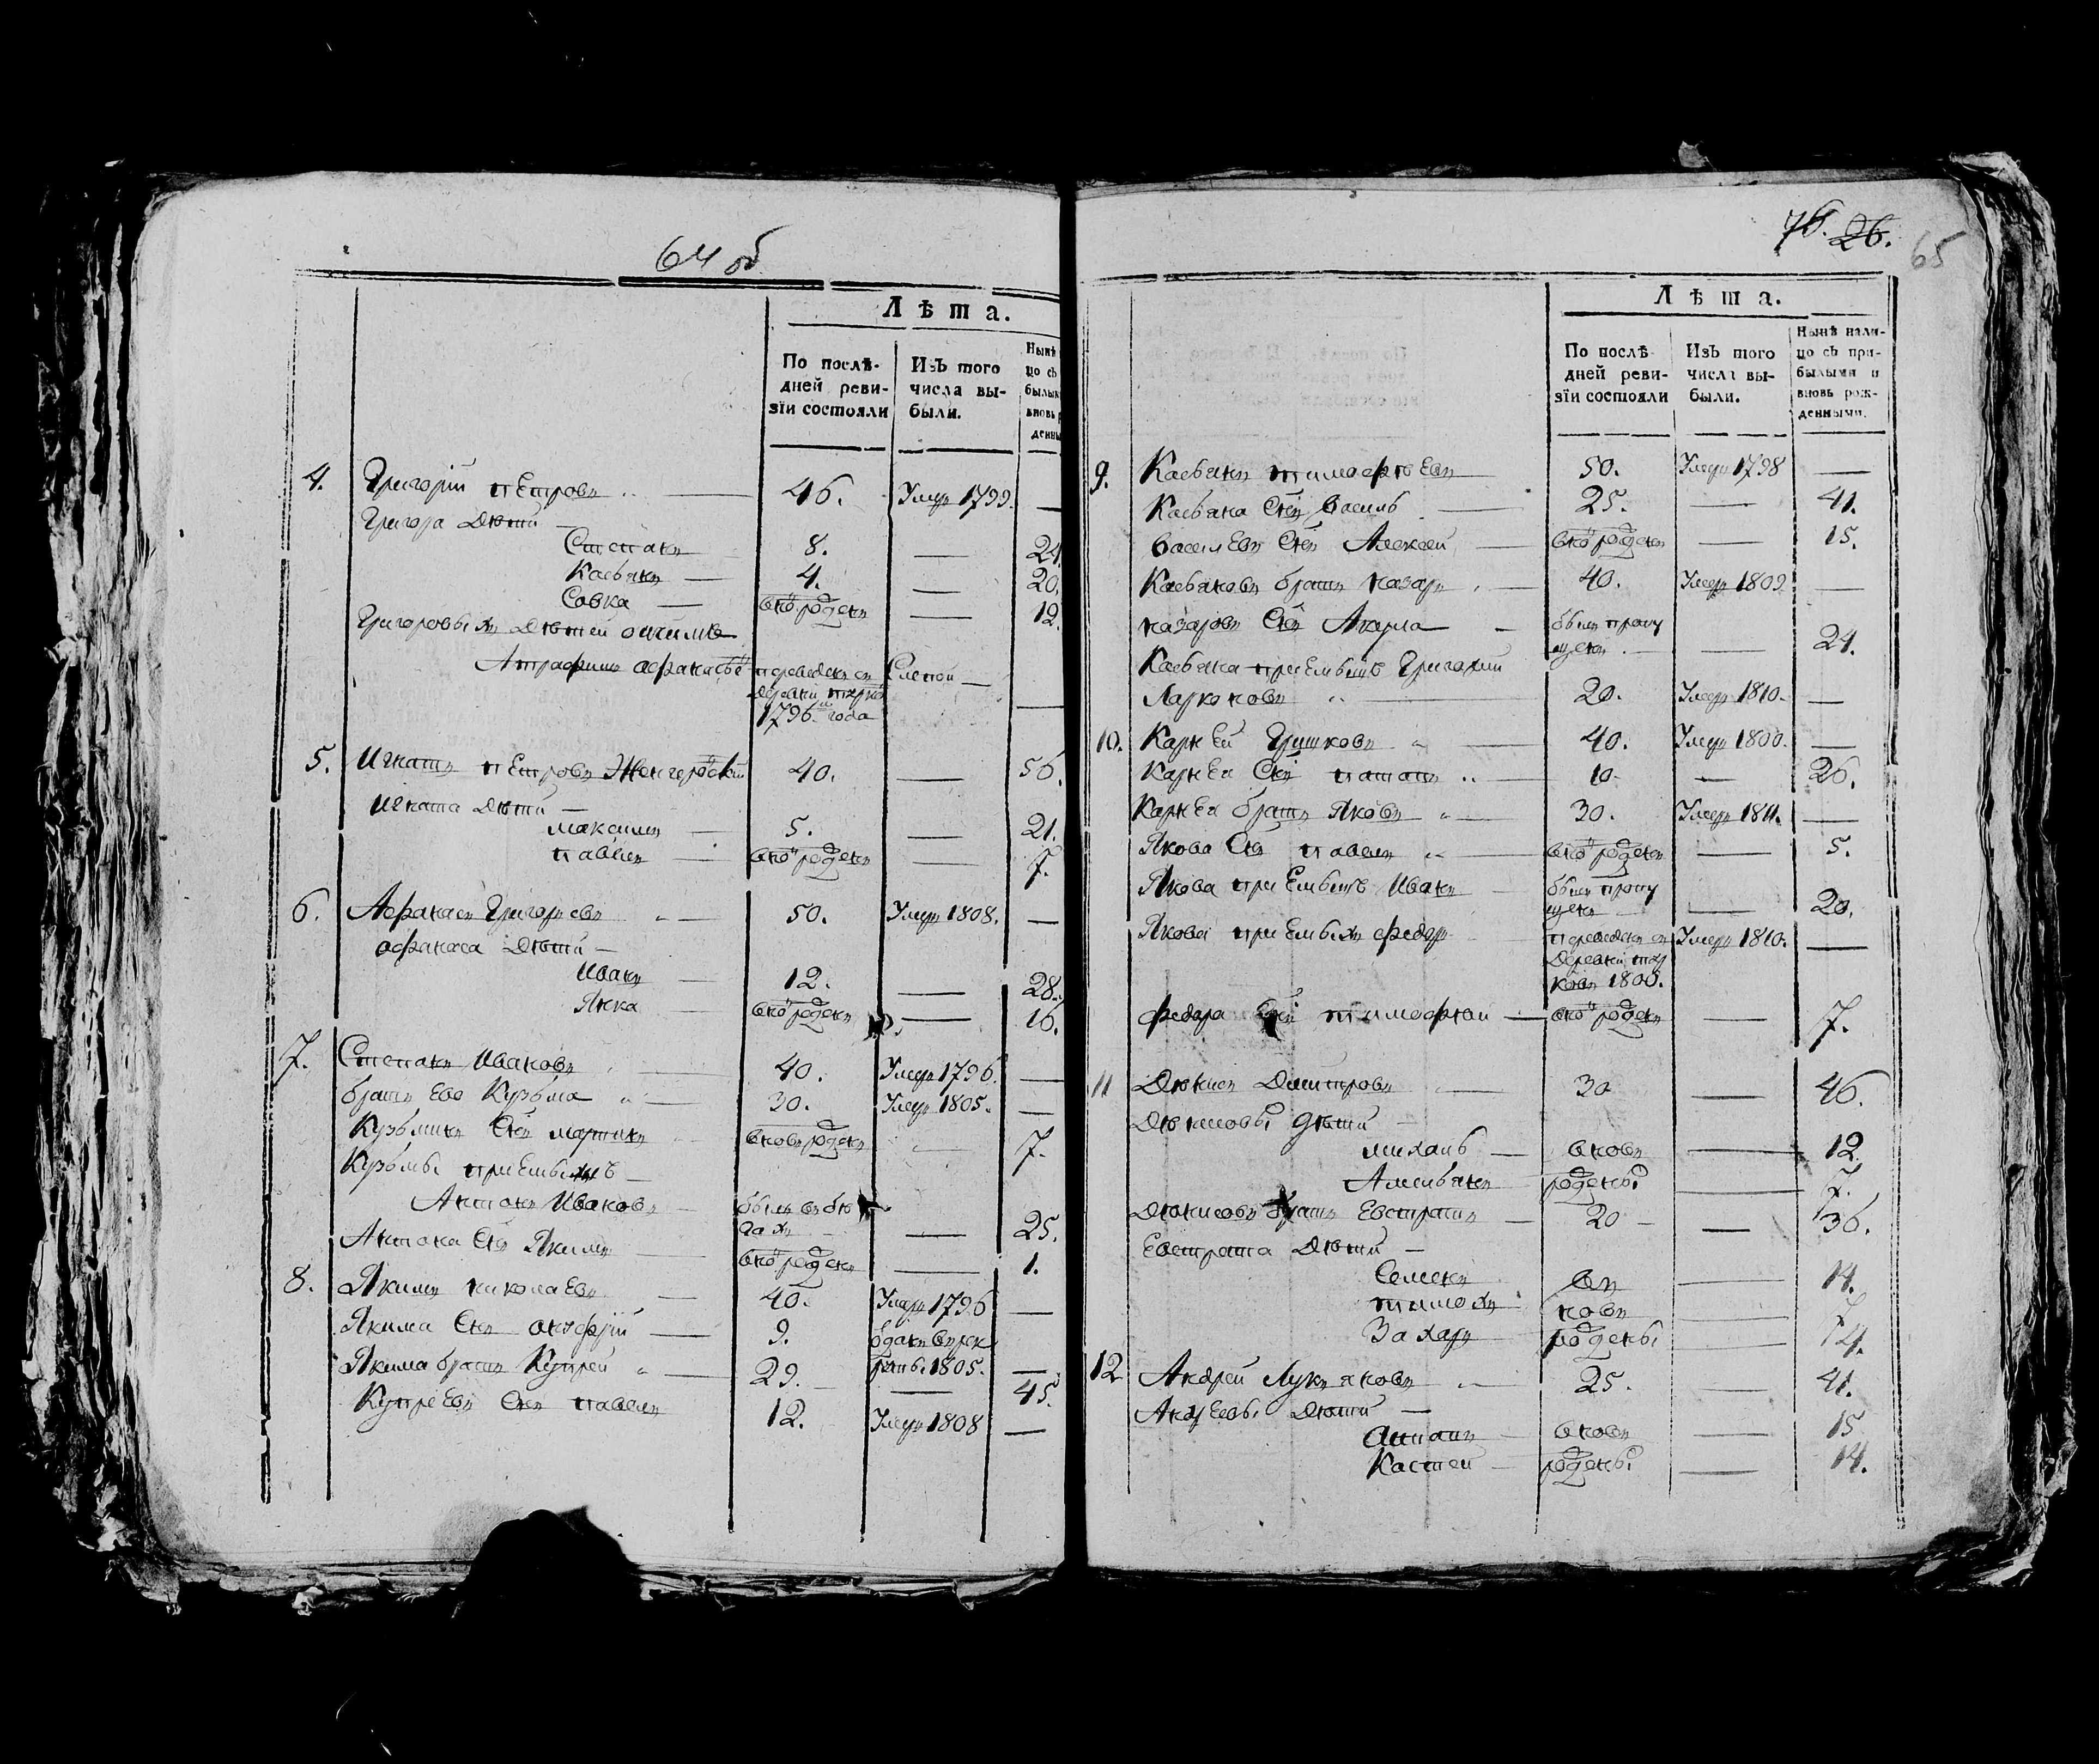 64 об
Лѣта.
По послѣ-
дней реви-
зіи состояли
Изъ того
числа вы-
были.
Нынѣ
цо съ
былым
вновь р
денны
4. Григорій Петровъ 46. Умеръ 1799. —
Григора Дѣти —
Степанъ 8. — 24
Касьянъ — 4. — 20.
Совка — вно рожденъ — 12.
Григоровыхъ Дѣтей отчимъ
переведенъ съ Слепой —
Деревни
1796 года —
5. Игнатъ Петровъ 40. — 56.
Игната Дѣти —
максимъ — 5. — 21.
павелъ — вно рожденъ — 7.
6. Афанасъ Григорьевъ — 50. Умеръ 1808. —
афанаса Дѣти —
Иванъ — 12. — 28.
Янка вно рожденъ — 16.
7. Степанъ Ивановъ — 40. Умеръ 1796. —
братъ Ево Кузьма — 30. Умеръ 1805. —
Кузьминъ Снъ мартинъ вновь рожденъ — 7.
Кузьмы
Антонъ Ивановъ — былъ въ бѣ
гахъ — 25.
Антона Снъ Якимъ — вно рожденъ — 1.
8. Якимъ николаевъ — 40. Умеръ 1796 —
Якима Снъ онуфрій — 9. Оданъ въ рек
руты 1805. —
Якима братъ Купрей — 29. — 45.
Купреевъ Снъ павелъ 12. Умеръ 1808 —
76. 26. 65
Лѣта.
По послѣ-
дней реви-
зіи состояли
Изъ того
числа вы-
были.
Нынѣ нали-
цо съ при-
былыми и
вновь рож-
денными.
9. Касьянъ тимофѣевъ 50. Умеръ 1798 —
Касьяна Снъ василь — 25. — 41.
васильевъ Снъ Алексей — вно рожденъ — 15.
Касьяновъ братъ назаръ — 40. Умеръ 1809. —
назаровъ Снъ — былъ пропу
щенъ — 24.
Касьяна приемышъ Григорий
Ларионовъ — 20. Умеръ 1810. —
10. Карней Гришковъ — 40. Умеръ 1800. —
Карнея Снъ потапъ — 10 — 26.
Карнея братъ Яковъ — 30. Умеръ 1811. —
Якова Снъ павелъ — вно рожденъ — 5.
Якова приемышъ Иванъ — былъ пропу
щенъ — 20.
Якова федоръ переведенъ съ Умеръ 1810. —
Деревни
1800.
федора Снъ тимофѣй — вно рожденъ — 7.
11 Дѣнисъ Димитровъ — 30 — 46.
Дѣнисовы дѣти —
михаль — вновь — 12.
Амельянъ рождены — 7.
Дѣнисовъ братъ Евстратъ — 20 — 36.
Евстрата Дѣти —
Семенъ въ — 14.
тимохъ новь — 7
Захаръ рождены 4.
12 Андрей Лукьяновъ — 25. — 41.
Андреевы Дѣти —
Антонъ вновь — 15
рождены — 14.